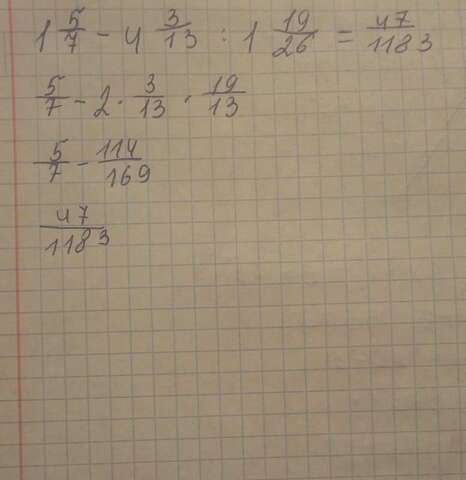 1 5/7 - 4 3/13 : 1 19/26 = 47/1183
5/7 - 2 · 3/13 · 19/13
5/7 - 114/169
47/1183